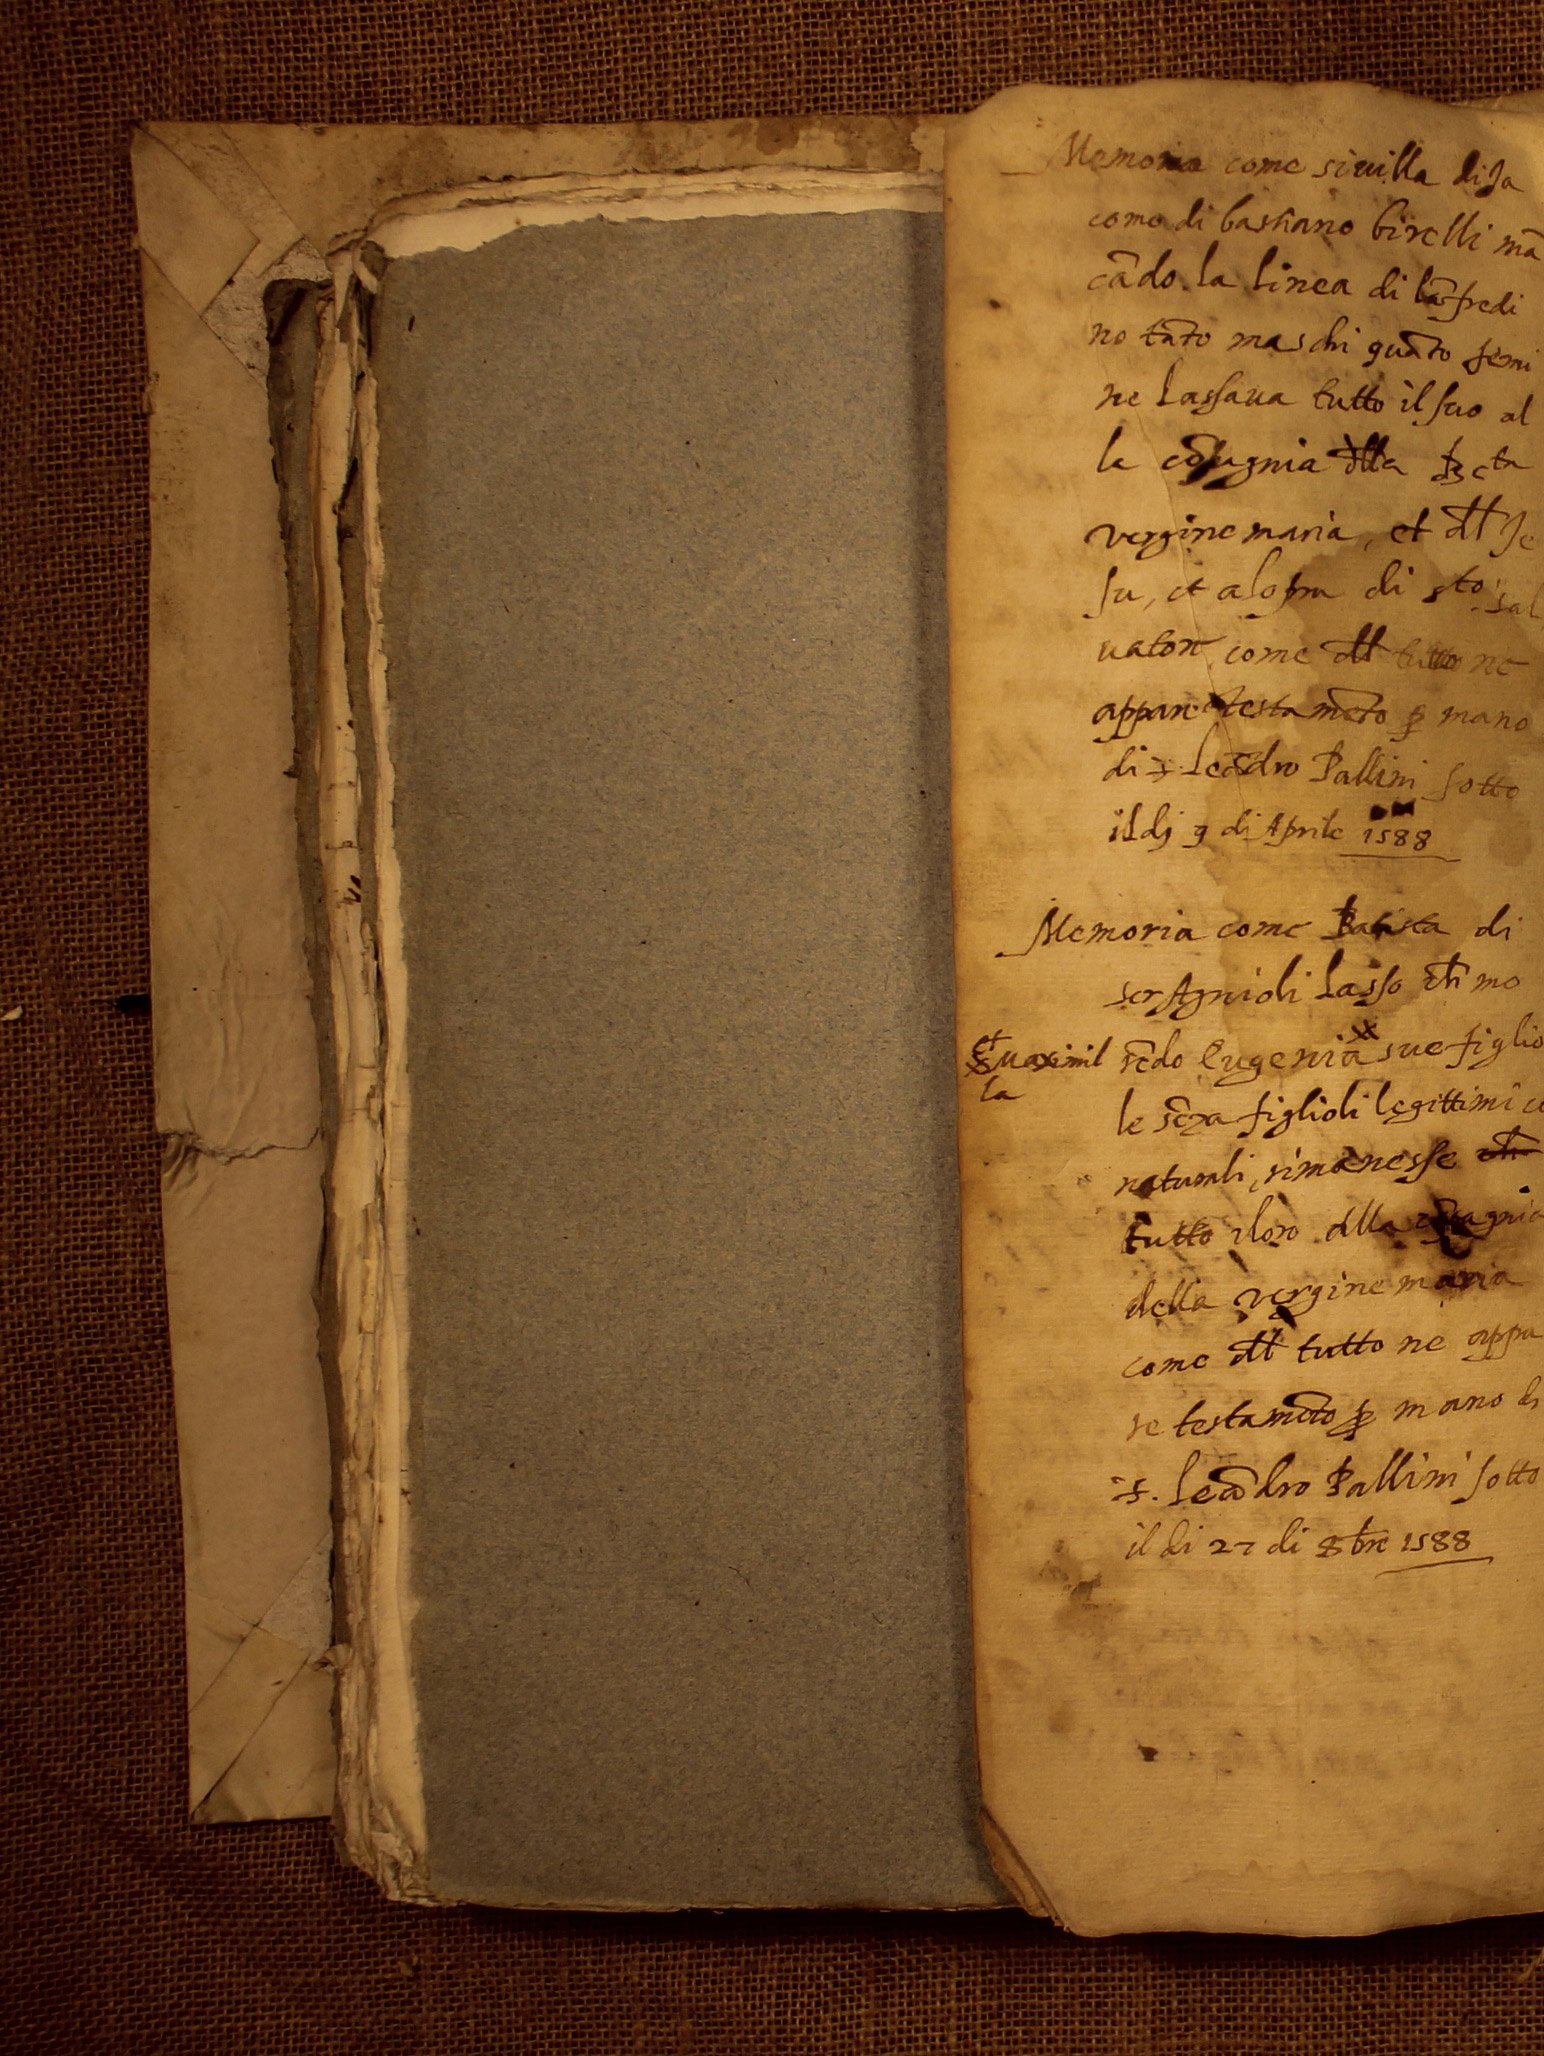 Memoria come siuilla di Ja
como di bastiano birelli mā
cādo. la linea di lāfredi
no tāto maschi quāto femi
ne lassaua tutto il suo al
la cōpagnia dlla
vergine maria, et dl Je
su, et a lopra di sto sal
uatore come dl tutto ne
appare testamēto ꝑ mano
di s. Leādro Pallini sotto
il dj 9 di Aprile 1588
Memoria come Batista di
ser Agnioli lasso ch mo
rēdo Eugenia sue figlio
et uaximil
la
le sēza figlioli legittimi e
naturali, rimanesse
tutto il loro alla cōpagnia
della vergine maria
come dl tutto ne appa
re testamēto ꝑ mano di
s. Leādro Pallini sotto
il di 27 di 8bre 1588